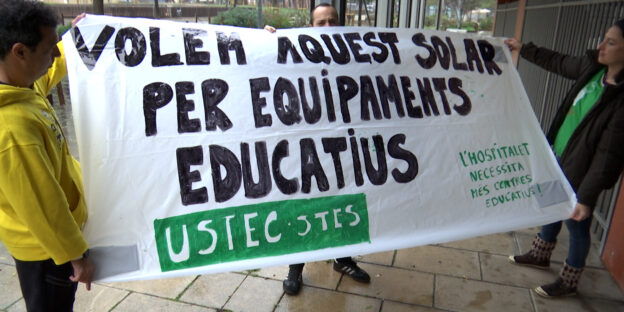 VOLEM AQUEST SOLAR
PER EQUIPAMENTS
EDUCATIUS
USTEC·STES
L'HOSPITALET
NECESSITA
MÉS CENTRES
EDUCATIUS!